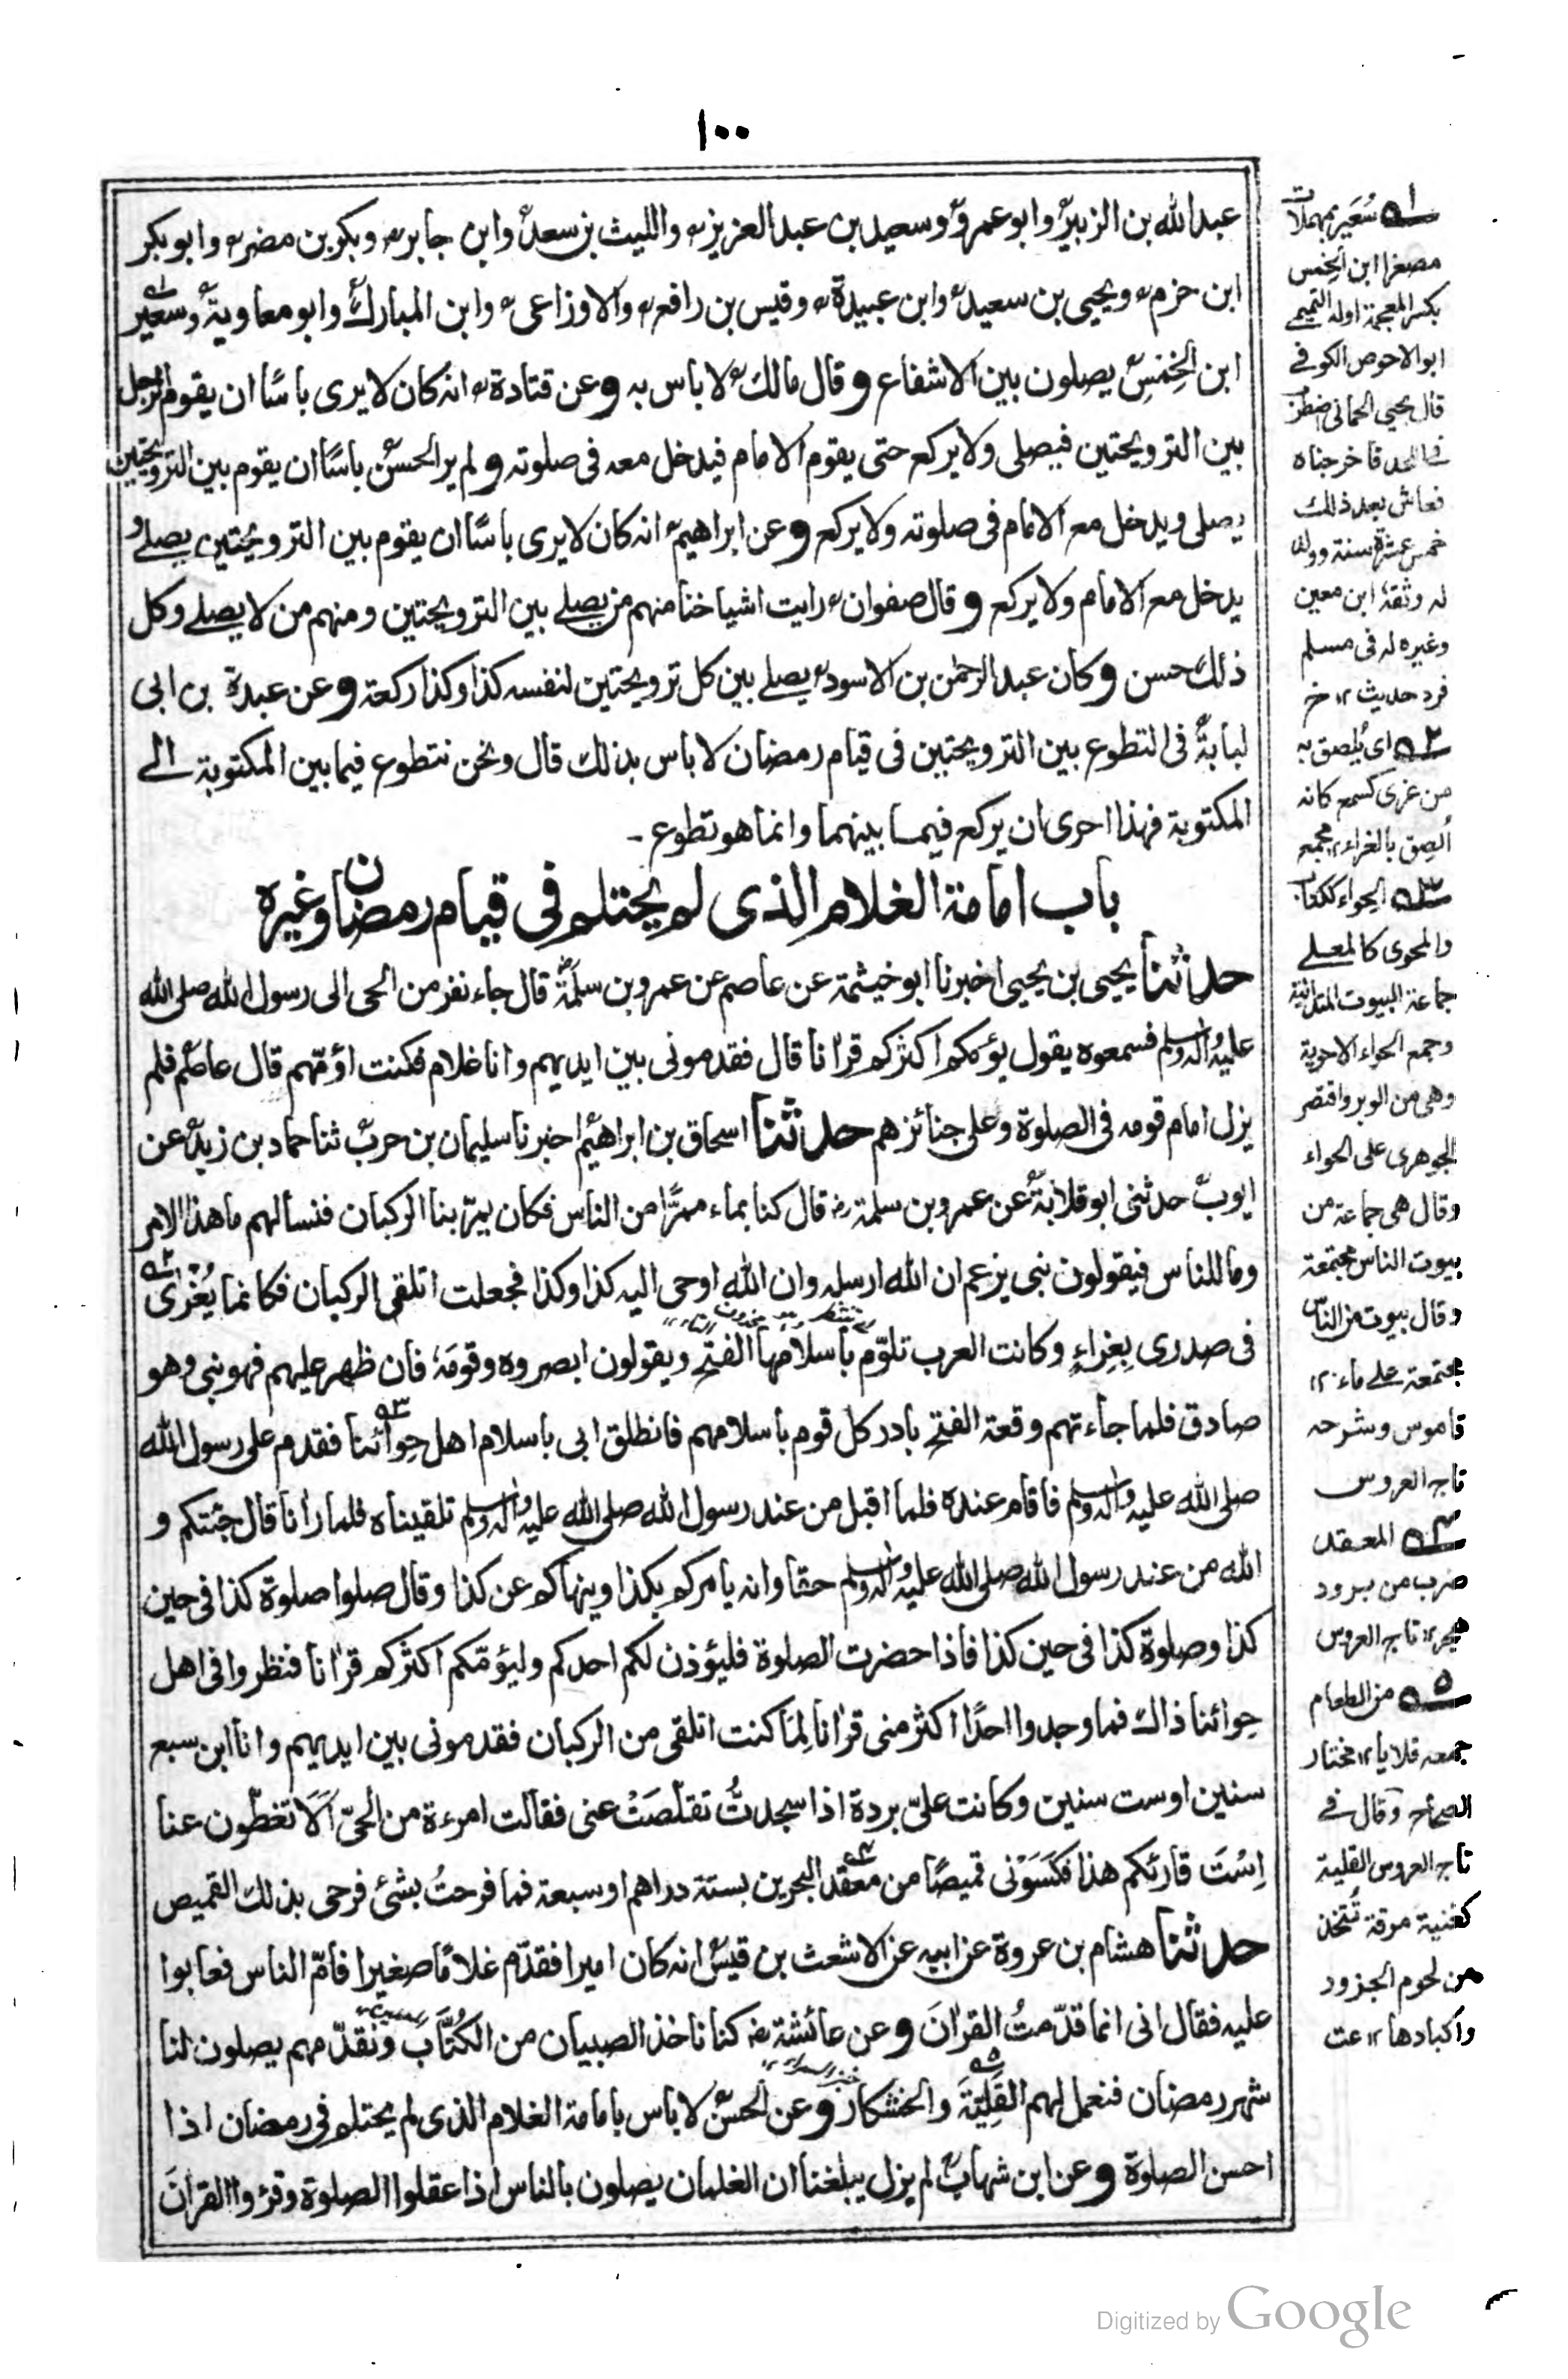 ١٠٠
عبدالله بن الزبير وابوعمرو وسعيد بن عبدالعزيز والليث بن سعد وابن جابر وبكر بن مضر وابو بكر
ابن حزم ويحيى بن سعيد وابن عبيدة وقيس بن رافع والاوزاعى وابن المبارك وابو معاوية وسُعَير
ابن الخِمْسِ يصلون بين الاشفاع وقال مالك لا باس به وعن قتادة انه كان لا يرى باسًا ان يقوم الرجل
بين الترويحتين فيصلى ولا يركع حتى يقوم الامام فيدخل معه فى صلوته ولم ير الحسن باسًا ان يقوم بين الترويحتين
يصلى ويدخل مع الامام فى صلوته ولا يركع وعن ابراهيم انه كان لا يرى باسًا ان يقوم بين الترويحتين يصلے و
يدخل مع الامام ولا يركع وقال صفوان رايت اشياخنا منهم من يصلے بين الترويحتين ومنهم من لا يصلے وكل
ذلك حسن وكان عبدالرحمن بن الاسود يصلے بين كل ترويحتين لنفسه كذا وكذا ركعة وعن عبدة بن ابى
لبابة فى التطوع بين الترويحتين فى قيام رمضان لا باس بذلك قال ونحن نتطوع فيما بين المكتوبة الے
المكتوبة فهذا احرى ان يركع فيما بينهما وانما هو تطوع -
باب امامة الغلام الذى لم يحتلم فى قيام رمضان وغيره
حدثنا يحيى بن يحيى اخبرنا ابو خيثمة عن عاصم عن عمرو بن سلمة قال جاء نفر من الحى الى رسول الله صلى الله
عليه واله وسلم فسمعوه يقول يؤمكم اكثركم قراٰنا قال فقدمونى بين ايديهم وانا غلام فكنت اؤمّهم قال عاصم فلم
يزل امام قومه فى الصلوة وعلى جنائزهم حدثنا اسحاق بن ابراهيم اخبرنا سليمان بن حرب ثنا حماد بن زيد عن
ايوب حدثنى ابو قلابة عن عمرو بن سلمة رض قال كنا بماء ممرًّا من الناس فكان يمرّ بنا الركبان فنسالهم ما هذا الامر
وما للناس فيقولون نبى يزعم ان الله ارسله وان الله اوحى اليه كذا وكذا فجعلت اتلقى الركبان فكانما يُغرٰى
فى صدرى بِغِراءٍ وكانت العرب تلوّم باسلامها الفتح ويقولون ابصروه وقومَه فان ظهر عليهم فهو نبى وهو
صادق فلما جاءتهم وقعة الفتح بادر كل قوم باسلامهم فانطلق ابى باسلام اهل حِوائنا فقدم على رسول الله
صلى الله عليه واله وسلم فاقام عنده فلما اقبل من عند رسول الله صلى الله عليه واله وسلم تلقيناه فلما راٰنا قال جئتكم و
الله من عند رسول الله صلى الله عليه واله وسلم حقا وانه يامركم بكذا وينهاكم عن كذا وقال صلوا صلوة كذا فى حين
كذا وصلوة كذا فى حين كذا فاذا حضرت الصلوة فليؤذن لكم احدكم وليؤمّكم اكثركم قراٰنا فنظروا فى اهل
حِوائنا ذاك فما وجدوا احدًا اكثر منى قراٰنا لِمَا كنت اتلقى من الركبان فقدمونى بين ايديهم وانا ابن سبع
سنين اوست سنين وكانت علىّ بردة اذا سجدتُ تقلّصَتْ عنى فقالت امرءة من الحىّ اَلَا تغطّون عنا
اِسْتَ قارئكم هذا فكَسَوْنى قميصًا من معقد البحرين بستة دراهم اوسبعة فما فرحتُ بشئ فرحى بذلك القميص
حدثنا هشام بن عروة عن ابيه عن الاشعث بن قيس انه كان اميرا فقدّم غلامًا صغيرا فامّ الناس فعابوا
عليه فقال انى انما قدّمتُ القراٰنَ وعن عائشة رض كنا ناخذ الصبيان من الكُتَّاب ونقدّمهم يصلون لنا
شهر رمضان فنعمل لهم القَلِيَّةَ والخشكار وعن الحسن لا باس بامامة الغلام الذى لم يحتلم فى رمضان اذا
احسن الصلوة وعن ابن شهاب لم يزل يبلغنا ان الغلمان يصلون بالناس اذا عقلوا الصلوة وقرؤا القراٰنَ
ـه١ سُعَير بمهملات
مصغرا ابن الخِمس
بكسر المعجمة اوله التميمے
ابو الاحوص الكوفے
قال يحيى الحمانى
فى اللحد فاخرجناه
فعاش بعد ذلك
خمس عشرة سنة وولد
له وثقه ابن معين
وغيره له فى مسلم
فرد حديث ١٢ خ
ـه٢ اى يُلصق به
من غرى كسمع كانه
اُلصِق بالغراء ١٢ مجمع
ـه٣ الحِواء ككتاب
والمحوى كالمعلے
جماعة البيوت المتدانية
وجمع الحواء الاحوية
وهى من الوبر واقتصر
الجوهرى على الحواء
وقال هى جماعة من
بيوت الناس مجتمعة
وقال بيوت من الناس
مجتمعة علے ماء ١٢
قاموس وشرحه
تاج العروس
ـه٤ المعقد
ضرب من برود
هجر ١٢ تاج العروس
ـه٥ من الطعام
جمعه قلايا ١٢ مختار
الصحاح وقال فے
تاج العروس القلية
كغنية مرقة تُتخذ
من لحوم الجزور
واكبادها ١٢ عت
Digitized by Google